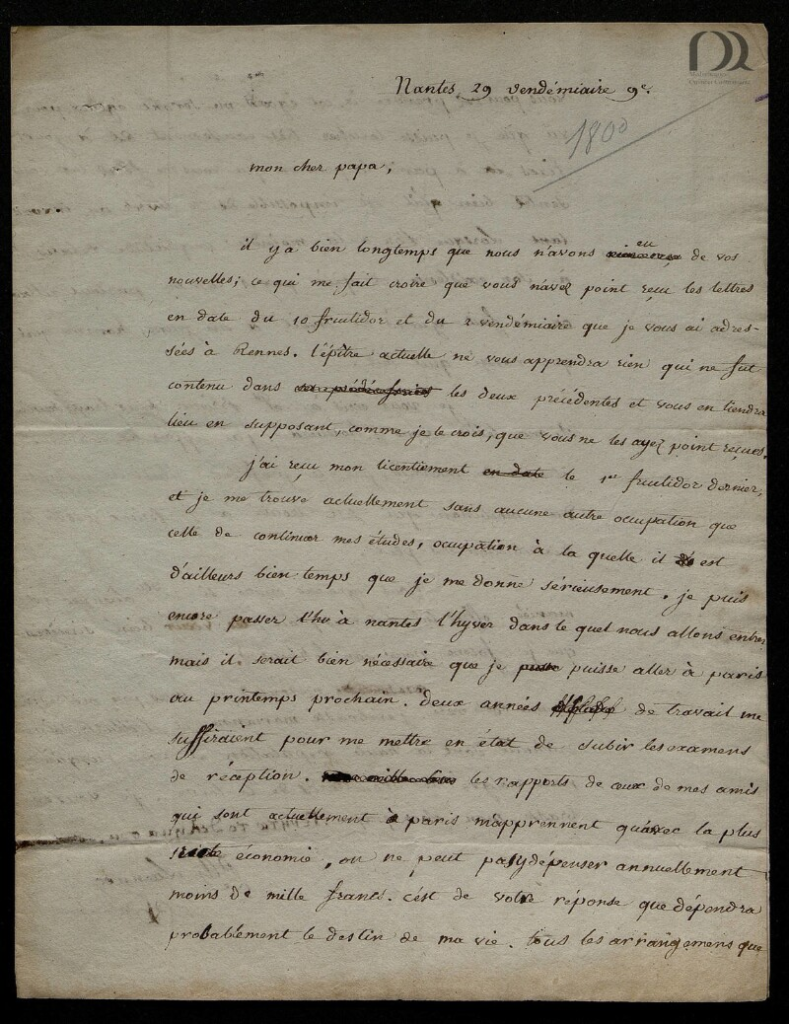 Nantes, 29 vendémiaire 9e.
1800
mon cher papa;
il y a bien longtemps que nous n'avons eu de vos
nouvelles; ce qui me fait croire que vous n'avez point reçu les lettres
en date du 10 fructidor et du 2 vendémiaire que je vous ai adres-
sées à Rennes. l'épitre actuelle ne vous apprendra rien qui ne fut
contenu dans les deux précédentes et vous en tiendra
lieu en supposant, comme je le crois, que vous ne les ayez point reçues.
j'ai reçu mon licentiement en date le 1er fructidor dernier,
et je me trouve actuellement sans aucune autre occupation que
celle de continuer mes études, occupation à la quelle il est
d'ailleurs bien temps que je me donne sérieusement. je puis
encore passer à nantes l'hyver dans le quel nous allons entrer
mais il serait bien nécessaire que je puisse aller à paris
au printemps prochain. deux années de travail me
suffiraient pour me mettre en état de subir les examens
de réception. les rapports de ceux de mes amis
qui sont actuellement à paris m'apprennent qu'avec la plus
économie, on ne peut pas y dépenser annuellement
moins de mille francs. c'est de votre réponse que dépendra
probablement le destin de ma vie. tous les arrangemens que